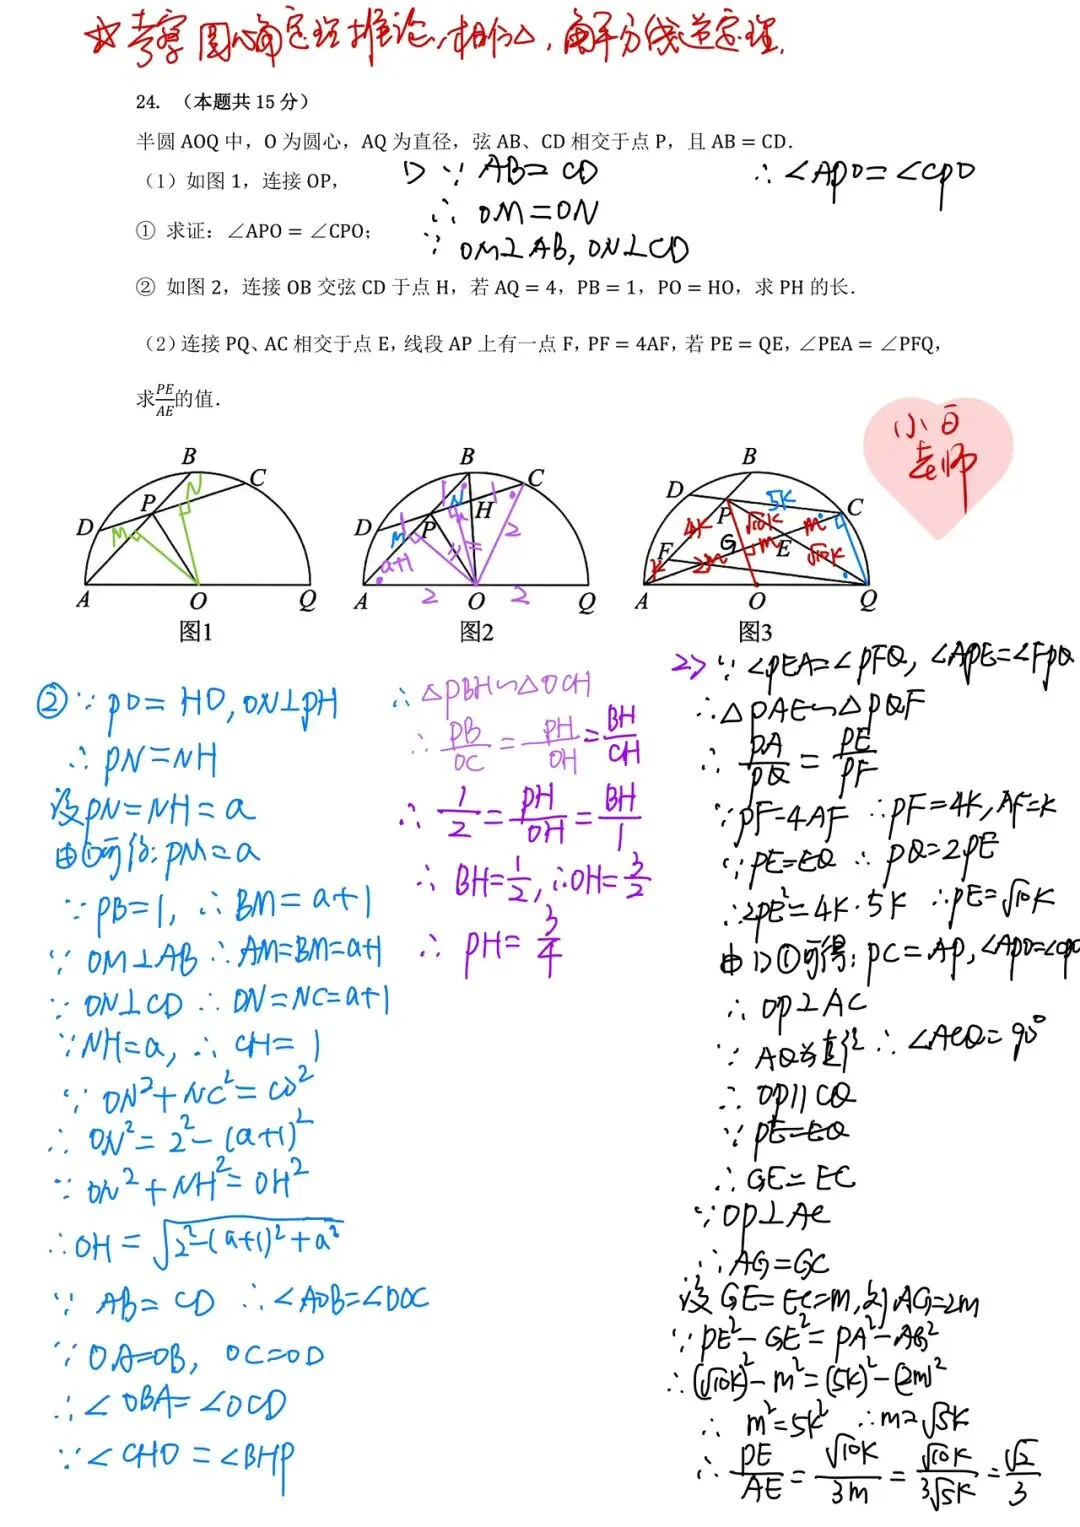 ☆考察圆心角定理推论,相似△,角平分线逆定理.
24. （本题共 15 分）
半圆 AOQ 中，O 为圆心，AQ 为直径，弦 AB、CD 相交于点 P，且 AB = CD．
（1）如图 1，连接 OP，
① 求证：∠APO = ∠CPO；
② 如图 2，连接 OB 交弦 CD 于点 H，若 AQ = 4，PB = 1，PO = HO，求 PH 的长．
（2）连接 PQ、AC 相交于点 E，线段 AP 上有一点 F，PF = 4AF，若 PE = QE，∠PEA = ∠PFQ，
求PE/AE的值．
1) ∵ AB = CD
∴ OM = ON
∵ OM⊥AB, ON⊥CD
∴ ∠APO = ∠CPO
小白
老师
B
C
N
P
D
M
A
O
Q
图1
B
C
1
N
1
H
D
P
a
M
a+1
2
A
2
O
2
Q
图2
B
D
5K
P
C
4K
√10K
m
G
m
E
F
2m
√10K
K
A
O
Q
图3
② ∵ PO = HO, ON⊥PH
∴ PN = NH
设PN = NH = a
由①可得: PM = a
∵ PB = 1, ∴ BM = a+1
∵ OM⊥AB ∴ AM=BM=a+1
∵ ON⊥CD ∴ DN = NC = a+1
∵ NH = a, ∴ CH = 1
∵ ON²+NC² = CO²
∴ ON² = 2²-(a+1)²
∵ ON²+NH² = OH²
∴ OH = √2²-(a+1)²+a²
∵ AB = CD ∴ ∠AOB=∠DOC
∵ OA=OB, OC=OD
∴ ∠OBA = ∠OCD
∵ ∠CHO = ∠BHP
∴ △PBH∽△OCH
∴ PB/OC = PH/OH = BH/CH
∴ 1/2 = PH/OH = BH/1
∴ BH=1/2, ∴ OH=3/2
∴ PH = 3/4
2) ∵ ∠PEA=∠PFQ, ∠APE=∠FPQ
∴ △PAE∽△PQF
∴ PA/PQ = PE/PF
∵ PF=4AF ∴ PF=4K, AF=K
∵ PE=EQ ∴ PQ=2PE
∴ 2PE²=4K·5K ∴ PE=√10K
由1)①可得: PC=AP, ∠APO=∠CPO
∴ OP⊥AC
∵ AQ为直径 ∴ ∠ACQ=90°
∴ OP∥CQ
∵ PE=EQ
∴ GE=EC
∵ OP⊥AC
∴ AG=GC
设GE=EC=m, 则AG=2m
∵ PE²-GE²=PA²-AG²
∴ (√10K)²-m²=(5K)²-(2m)²
∴ m²=5K² ∴ m=√5K
∴ PE/AE = √10K/3m = √10K/3√5K = √2/3